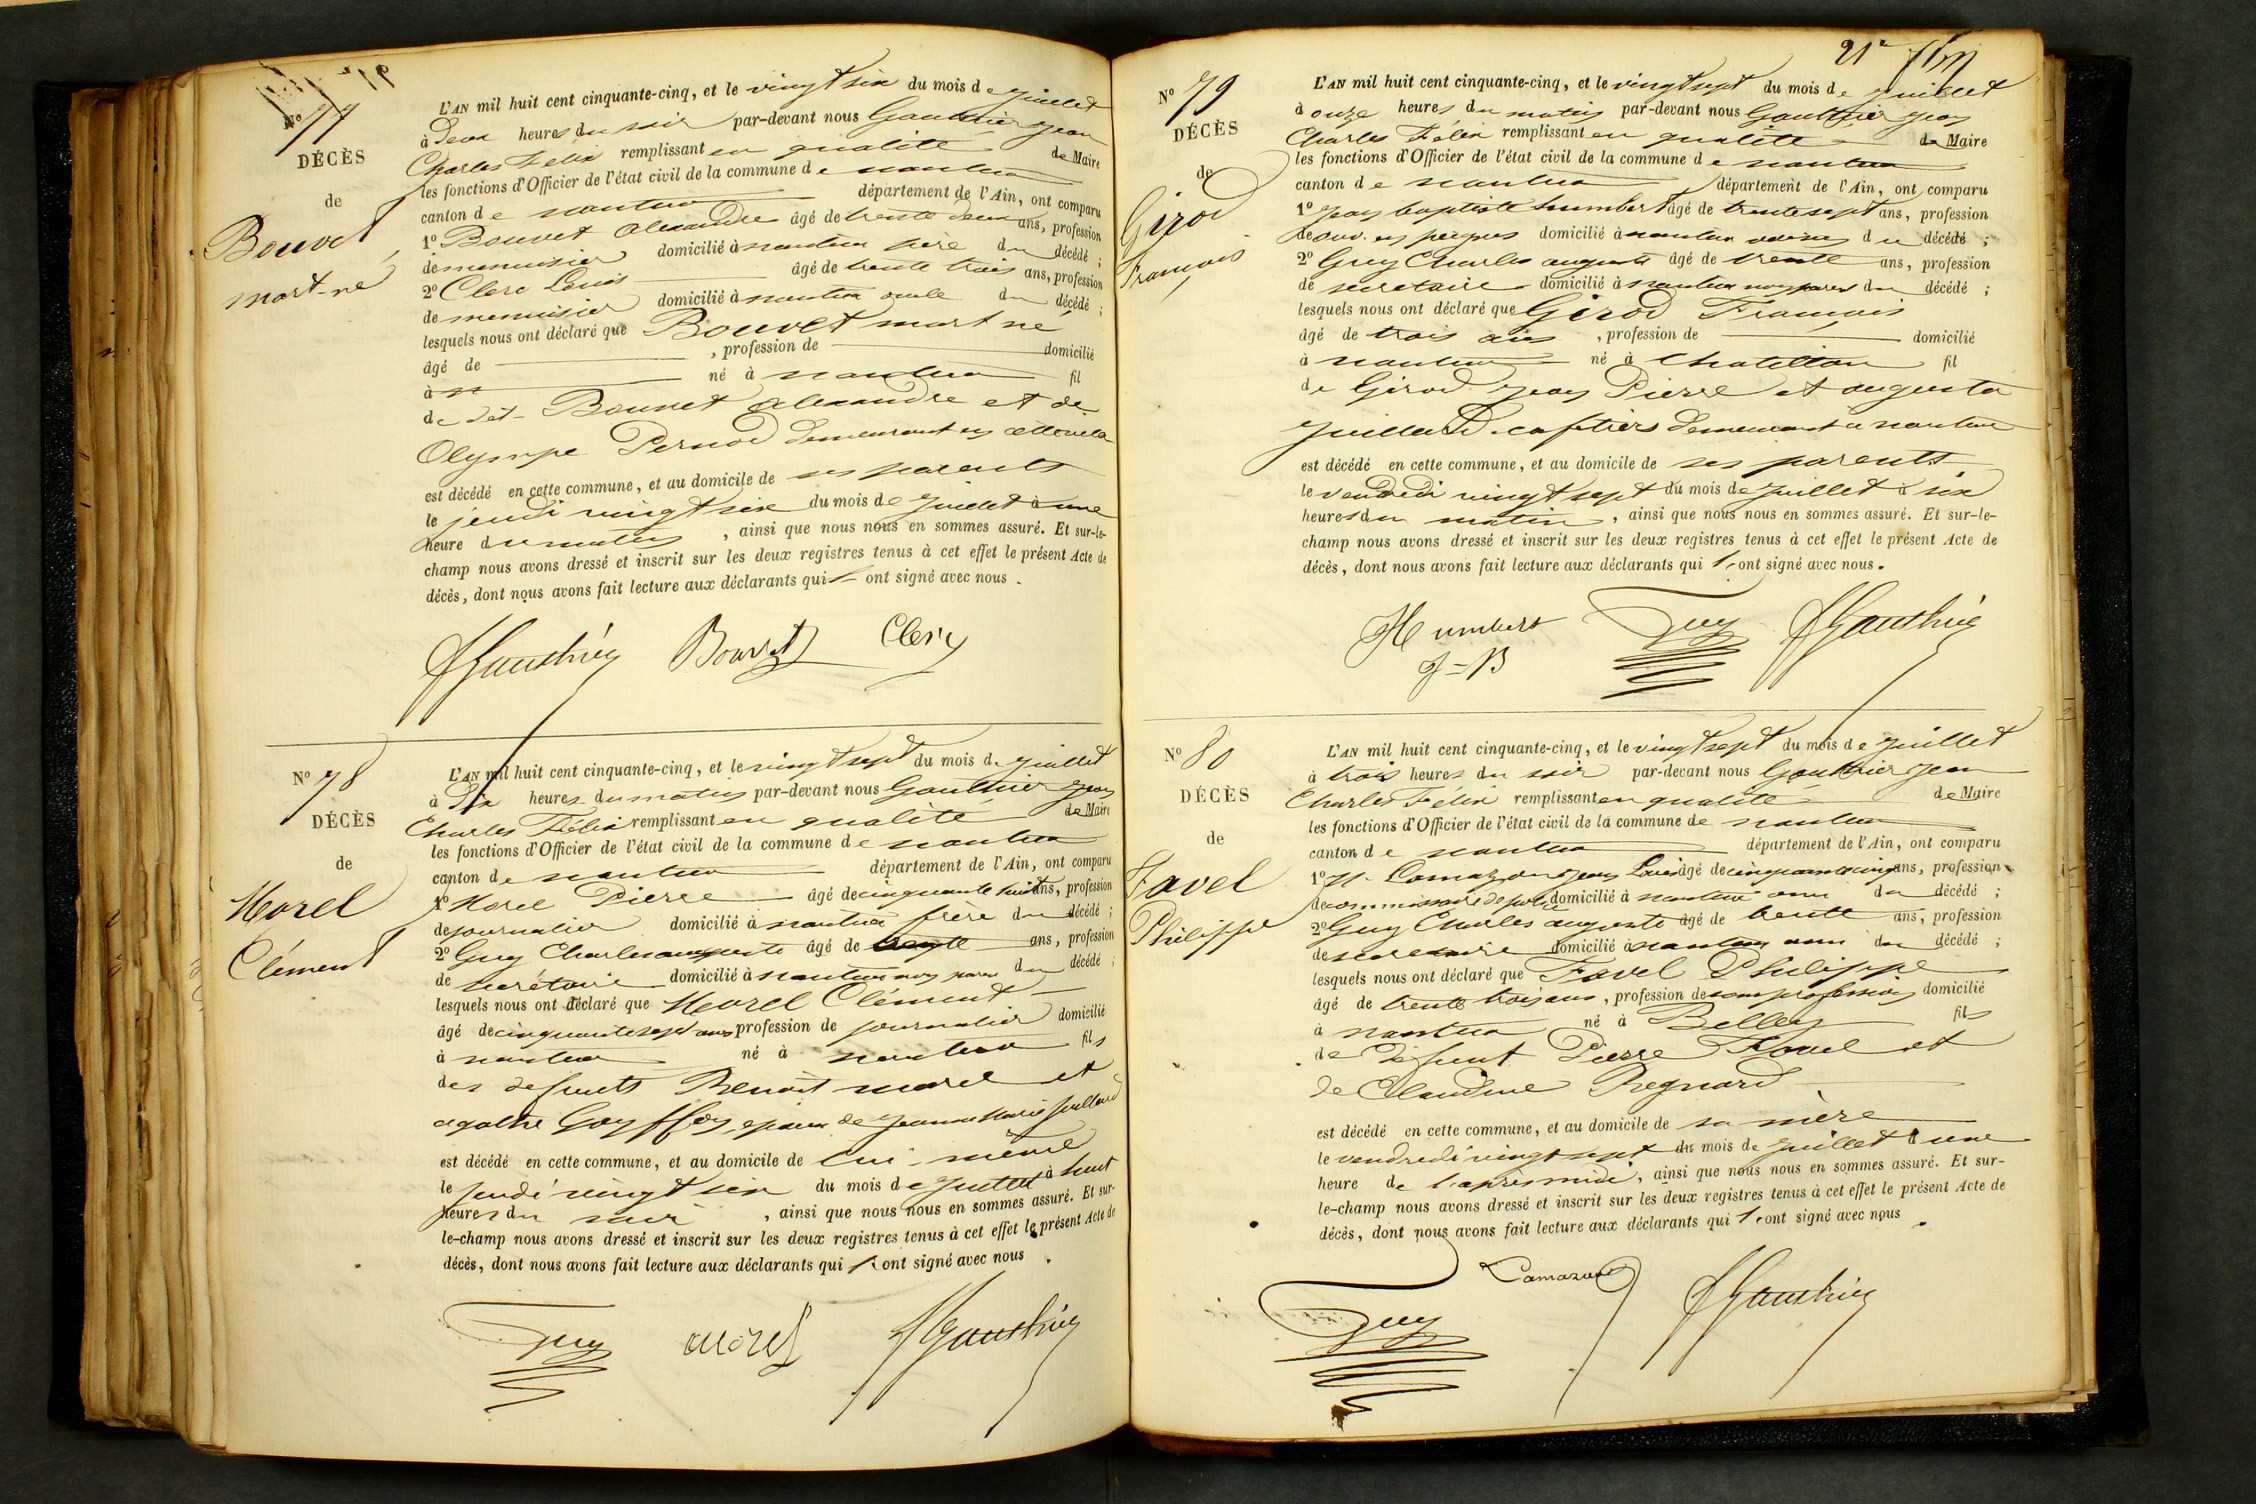 N° 77
DÉCÈS
de
Bouvet
mort-né
L'AN mil huit cent cinquante-cinq, et le vingt six du mois de juillet
à deux heures du soir par-devant nous Gauthier Jean
Charles Félix remplissant en qualité de Maire
les fonctions d'Officier de l'état civil de la commune de nantua
canton de nantua département de l'Ain, ont comparu
1° Bouvet alexandre âgé de trente deux ans, profession
de menuisier domicilié à nantua père du décédé ;
2° Clerc Louis âgé de trente trois ans, profession
de menuisier domicilié à nantua oncle du décédé ;
lesquels nous ont déclaré que Bouvet mort né
âgé de , profession de domicilié
à né à nantua fil
de dit Bouvet alexandre et de
Olympe Pernod demeurant en cette ville
est décédé en cette commune, et au domicile de ses parents
le jeudi vingt six du mois de juillet à une
heure du matin , ainsi que nous nous en sommes assuré. Et sur-le-
champ nous avons dressé et inscrit sur les deux registres tenus à cet effet le présent Acte de
décès, dont nous avons fait lecture aux déclarants qui l' ont signé avec nous .
Gauthier Bouvet Clerc
N° 78
DÉCÈS
de
Morel
Clément
L'AN mil huit cent cinquante-cinq, et le vingt sept du mois de juillet
à dix heures du matin par-devant nous Gauthier Jean
Charles Félix remplissant en qualité de Maire
les fonctions d'Officier de l'état civil de la commune de nantua
canton de nantua département de l'Ain, ont comparu
1° Morel Pierre âgé de cinquante huit ans, profession
de journalier domicilié à nantua frère du décédé ;
2° Guy Charles auguste âgé de trente ans, profession
de secrétaire domicilié à nantua non parent du décédé ;
lesquels nous ont déclaré que Morel Clément
âgé de cinquante sept ans profession de journalier domicilié
à nantua né à nantua fils
des defunts Benoit morel et
agathe Goyffon, epoux de Jeanne Marie Juillard
est décédé en cette commune, et au domicile de lui même
le jeudi vingt six du mois de juillet à huit
heures du soir , ainsi que nous nous en sommes assuré. Et sur-
le-champ nous avons dressé et inscrit sur les deux registres tenus à cet effet le présent Acte de
décès, dont nous avons fait lecture aux déclarants qui l' ont signé avec nous .
Guy morel Gauthier
21e
N° 79
DÉCÈS
de
Girod
François
L'AN mil huit cent cinquante-cinq, et le vingt sept du mois de juillet
à onze heures du matin par-devant nous Gauthier Jean
Charles Félix remplissant en qualité de Maire
les fonctions d'Officier de l'état civil de la commune de nantua
canton de nantua département de l'Ain, ont comparu
1° Jean baptiste humbert âgé de trente sept ans, profession
de ouv. en peignes domicilié à nantua voisin du décédé ;
2° Guy Charles auguste âgé de trente ans, profession
de secretaire domicilié à nantua non parent du décédé ;
lesquels nous ont déclaré que Girod François
âgé de trois ans , profession de domicilié
à nantua né à Chatillon fil
de Girod Jean Pierre et augusta
Juillard caftiers demeurant à nantua
est décédé en cette commune, et au domicile de ses parents
le vendredi vingt sept du mois de juillet à six
heures du matin , ainsi que nous nous en sommes assuré. Et sur-le-
champ nous avons dressé et inscrit sur les deux registres tenus à cet effet le présent Acte de
décès, dont nous avons fait lecture aux déclarants qui l' ont signé avec nous .
Humbert Guy Gauthier
J=B
N° 80
DÉCÈS
de
Favel
Philippe
L'AN mil huit cent cinquante-cinq, et le vingt sept du mois de juillet
à trois heures du soir par-devant nous Gauthier Jean
Charles Félix remplissant en qualité de Maire
les fonctions d'Officier de l'état civil de la commune de nantua
canton de nantua département de l'Ain, ont comparu
1° Jean Louis âgé de cinquante cinq ans, profession
de commissaire de police domicilié à nantua ami du décédé ;
2° Guy Charles auguste âgé de trente ans, profession
de secretaire domicilié à nantua ami du décédé ;
lesquels nous ont déclaré que Favel Philippe
âgé de trente trois ans , profession de sans profession domicilié
à nantua né à Belley fils
de defunt Pierre Favel et
de Claudine Regnard
est décédé en cette commune, et au domicile de sa mère
le vendredi vingt sept du mois de juillet à une
heure de l'après midi , ainsi que nous nous en sommes assuré. Et sur-
le-champ nous avons dressé et inscrit sur les deux registres tenus à cet effet le présent Acte de
décès, dont nous avons fait lecture aux déclarants qui l' ont signé avec nous .
Guy Gauthier